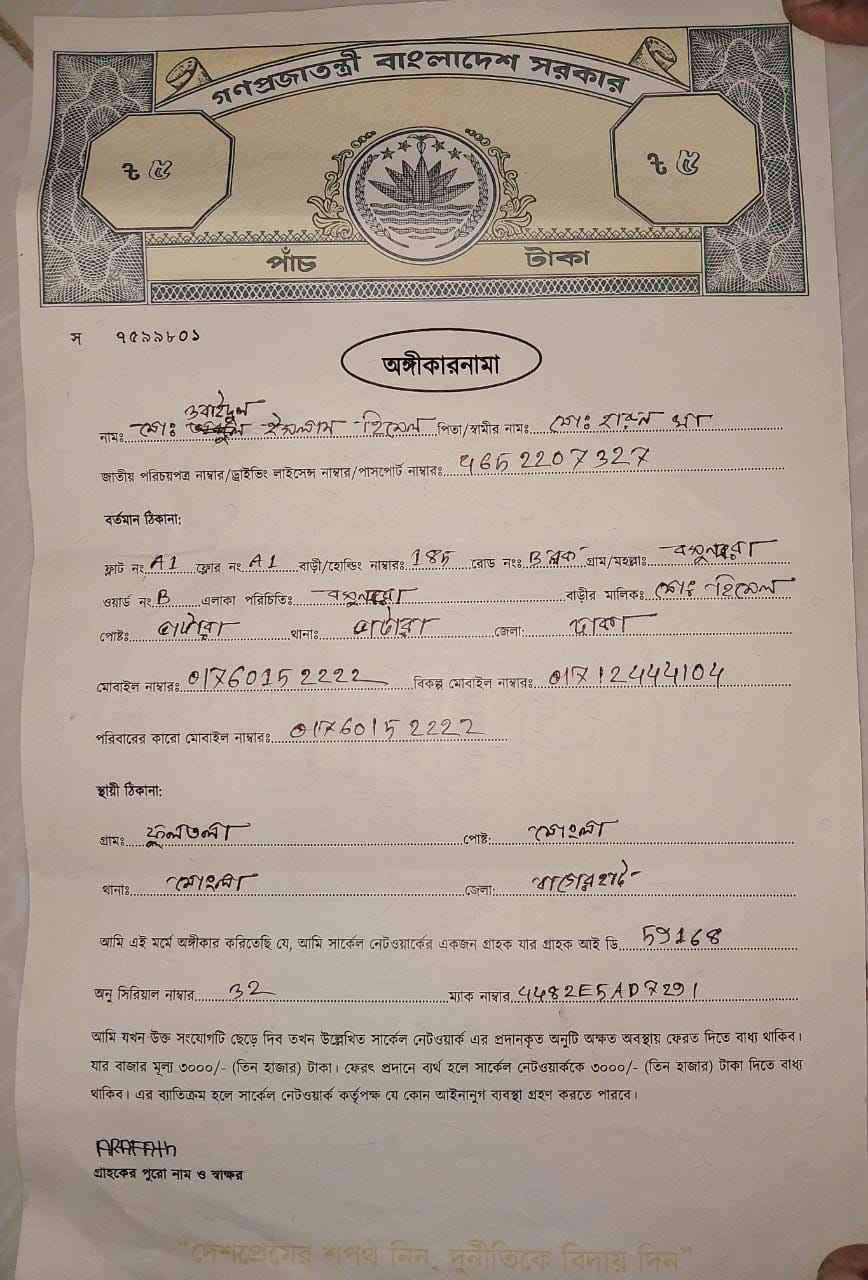 গণপ্রজাতন্ত্রী বাংলাদেশ সরকার
৳ ৫ ৳ ৫
পাঁচ টাকা
স ৭৫৯৯৮০১
অঙ্গীকারনামা
নামঃ মোঃ ওবাইদুল ইসলাম হিমেল পিতা/স্বামীর নাম: মোঃ হারুন
জাতীয় পরিচয়পত্র নাম্বার/ড্রাইভিং লাইসেন্স নাম্বার/পাসপোর্ট নাম্বারঃ 4652207327
বর্তমান ঠিকানা:
ফ্লাট নং A1 ফ্লোর নং A1 বাড়ী/হোল্ডিং নাম্বারঃ 185 রোড নংঃ B ব্লক গ্রাম/মহল্লাঃ বসুন্ধরা
ওয়ার্ড নং B এলাকা পরিচিতিঃ বসুন্ধরা বাড়ীর মালিকঃ মোঃ হিমেল
পোষ্টঃ ভাটারা থানাঃ ভাটারা জেলা: ঢাকা
মোবাইল নাম্বারঃ 01760152222 বিকল্প মোবাইল নাম্বারঃ 01712444104
পরিবারের কারো মোবাইল নাম্বারঃ 01760152222
স্থায়ী ঠিকানা:
গ্রামঃ ফুলতলা পোষ্ট: মোংলা
থানাঃ মোংলা জেলা: বাগেরহাট
আমি এই মর্মে অঙ্গীকার করিতেছি যে, আমি সার্কেল নেটওয়ার্কের একজন গ্রাহক যার গ্রাহক আই ডি 59168
অনু সিরিয়াল নাম্বার 32 ম্যাক নাম্বার 4482E5AD7291
আমি যখন উক্ত সংযোগটি ছেড়ে দিব তখন উল্লেখিত সার্কেল নেটওয়ার্ক এর প্রদানকৃত অনুটি অক্ষত অবস্থায় ফেরত দিতে বাধ্য থাকিব।
যার বাজার মূল্য ৩০০০/- (তিন হাজার) টাকা। ফেরৎ প্রদানে ব্যর্থ হলে সার্কেল নেটওয়ার্ককে ৩০০০/- (তিন হাজার) টাকা দিতে বাধ্য
থাকিব। এর ব্যতিক্রম হলে সার্কেল নেটওয়ার্ক কর্তৃপক্ষ যে কোন আইনানুগ ব্যবস্থা গ্রহণ করতে পারবে।
ARAFATH
গ্রাহকের পুরো নাম ও স্বাক্ষর
“দেশপ্রেমের শপথ নিন, দুর্নীতিকে বিদায় দিন”